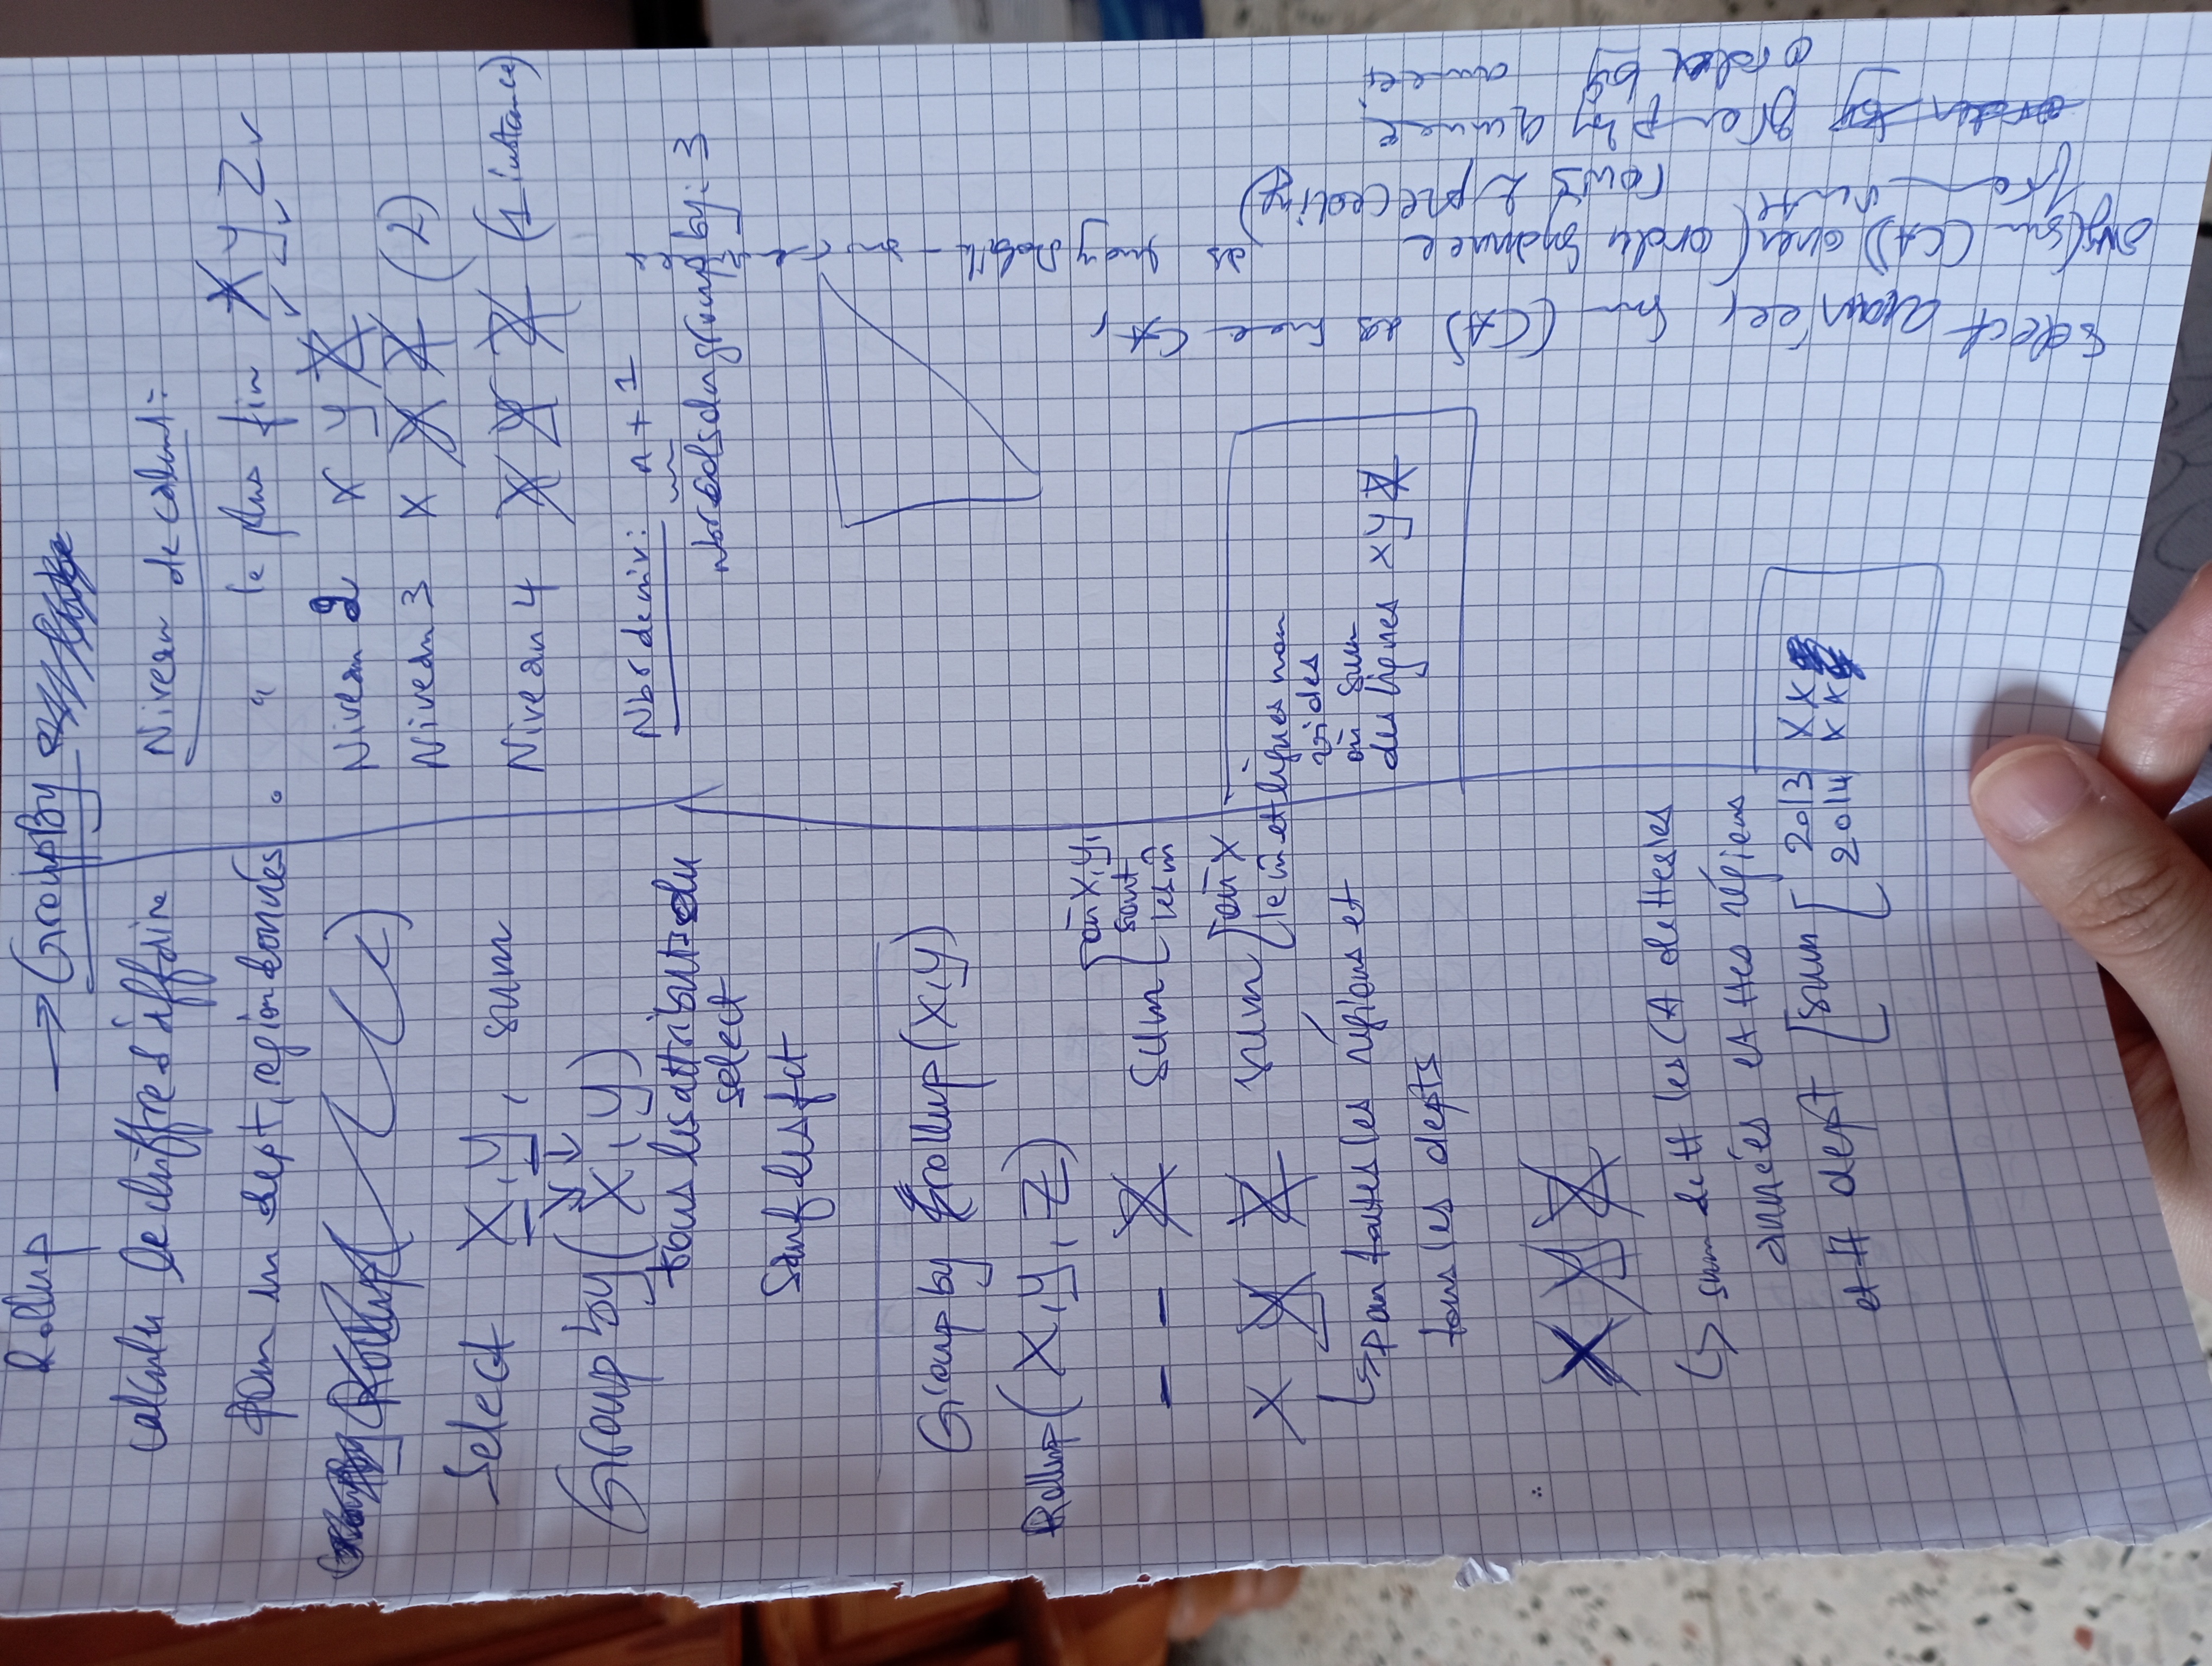 Rollup → GroupBy
calculer le chiffre d'affaire
pour un dept, région donnés
Rollup( )
Select X, y, sum
Group by (X, y)
tous les attributs du
select
Sauf les fct
Group by rollup (X, y)
Rollup (X, y, Z)
– – Z sum [où X, y,
sont
les m̂
X y Z sum [où X
le m̂ et lignes non
vides
où sum
des lignes X y Z
↳ pour toutes les régions et
tous les depts
X y Z
↳ sum de tt les CA de ttes les
années et ttes régions
et tt dept [sum [ 2013 X X
2014 X X
Niveau de calcul :
" le plus fin X y Z
Niveau 2 X y Z
Niveau 3 X y Z (2)
Niveau 4 X y Z (1 instance)
Nbr de niv : n + 1
Nbr cols du group by : 3
Select année, sum (CA) as
avg(sum (CA)) over ( order by année
rows 2 preceding)
as moy Mobile
from vente
group by année
order by
order by année;